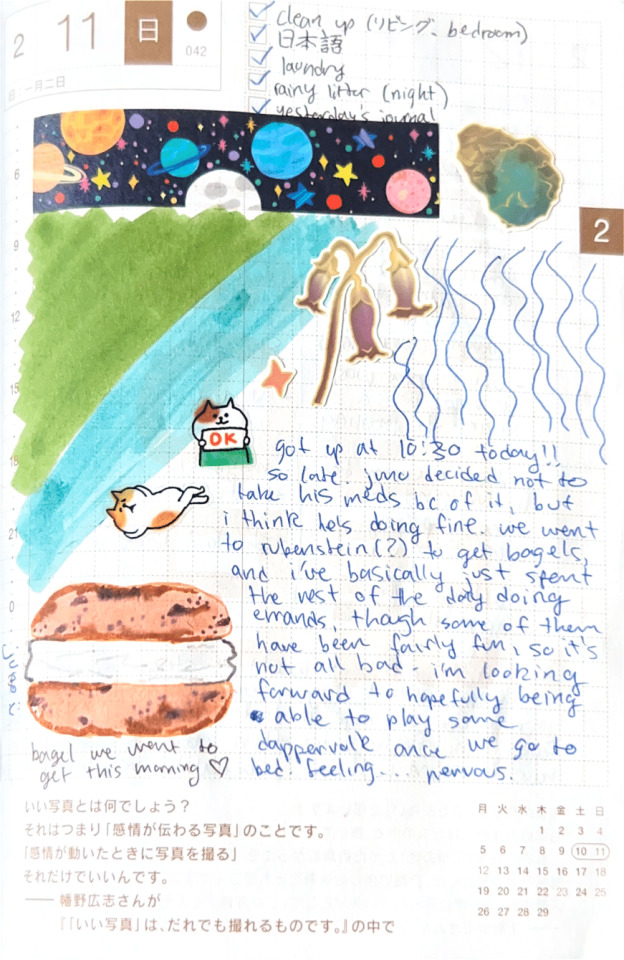 2 11 日
042
一月二日
clean up (リビング、bedroom)
日本語
laundry
rainy litter (night)
yesterday's journal
6
9
2
12
15
OK
18
21
0
got up at 10:30 today!!
so late. juno decided not to
take his meds bc of it, but
i think he's doing fine. we went
to rubenstein(?) to get bagels,
and i've basically just spent
the rest of the day doing
errands, though some of them
have been fairly fun, so it's
not all bad. i'm looking
forward to hopefully being
able to play some
dappervolk once we go to
bed. feeling... nervous.
bagel we went to
get this morning ♡
いい写真とは何でしょう?
それはつまり「感情が伝わる写真」のことです。
「感情が動いたときに写真を撮る」
それだけでいいんです。
── 幡野広志さんが
『「いい写真」は、だれでも撮れるものです。』の中で
月 火 水 木 金 土 日
1 2 3 4
5 6 7 8 9 10 11
12 13 14 15 16 17 18
19 20 21 22 23 24 25
26 27 28 29